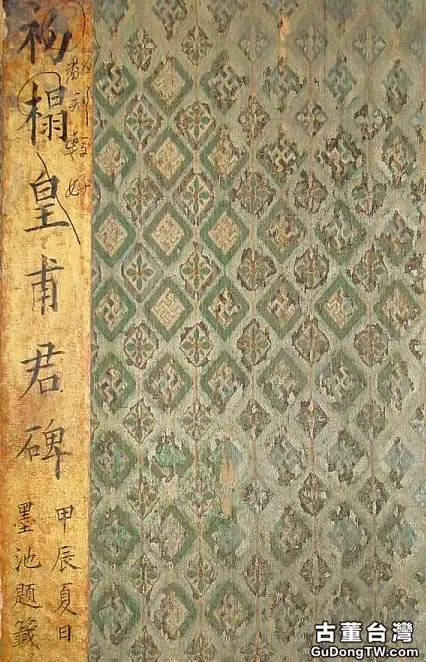 初榻皇甫君碑
甲辰夏日
墨池題籤
古董台灣
GuDongTW.com